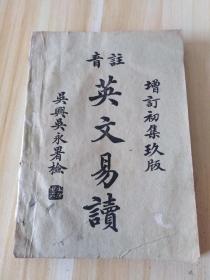 音註
英文易讀
增訂初集玖版
吳興吳永署檢